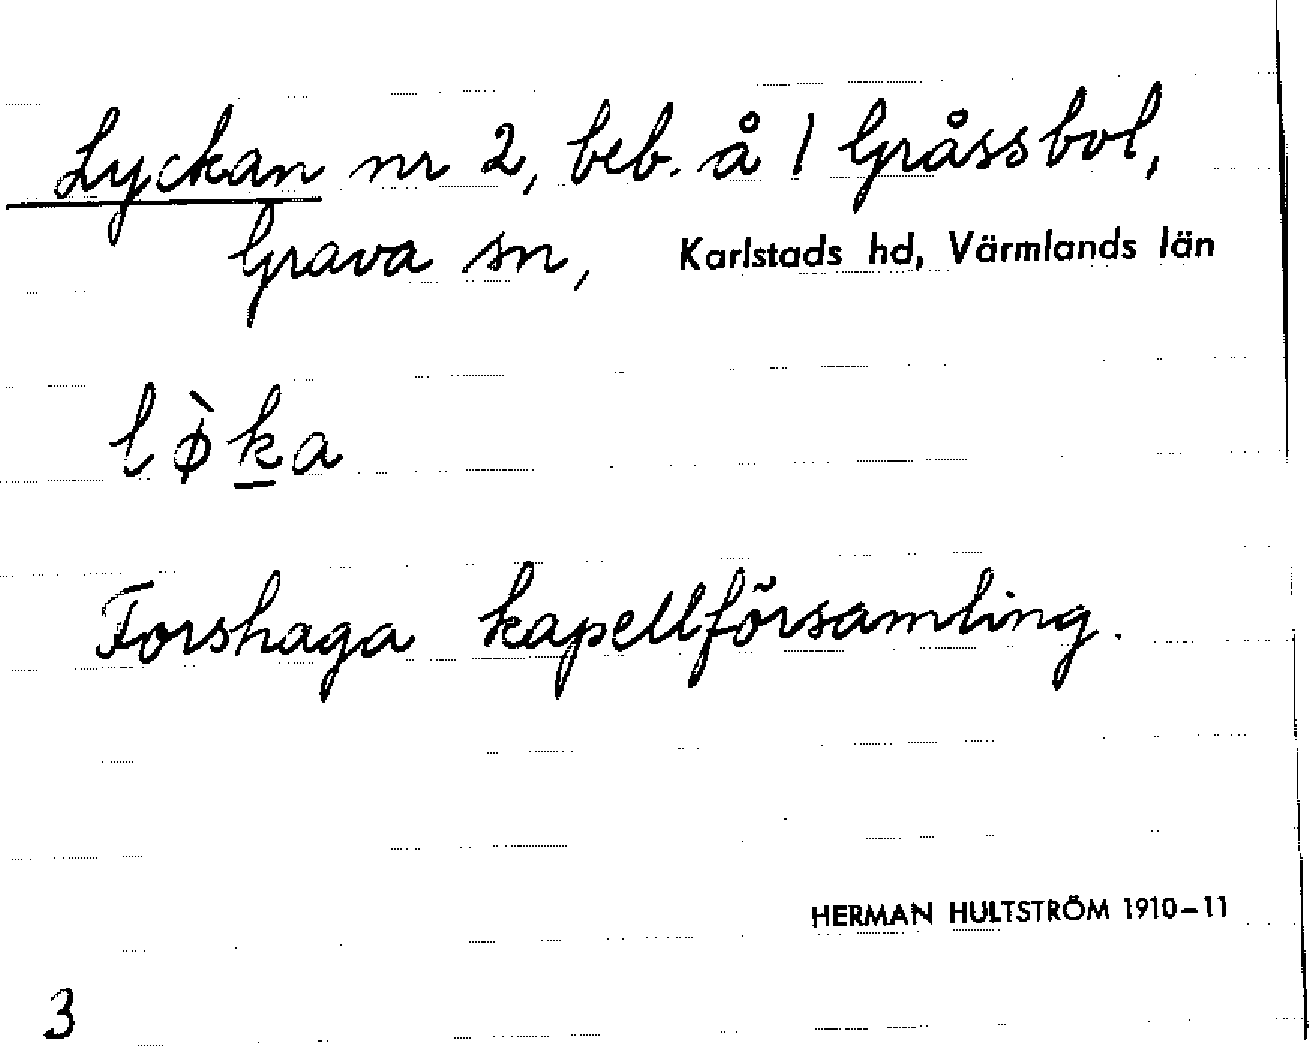 Lyckan nr 2, beb. å 1 Gråssbol,
Grava sn, Karlstads hd, Värmlands län
lø̀k̲a
Forshaga kapellförsamling.
HERMAN HULTSTRÖM 1910-11
3